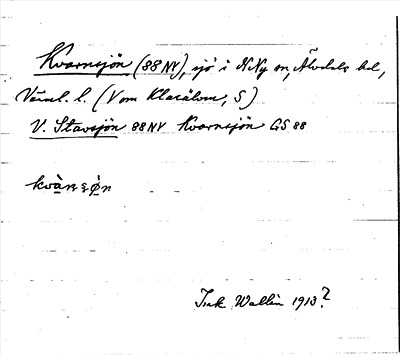 Kvarnsjön (88 NV), sjö i N Ny sn, Älvdals hd,
Värml. l. (V om Klarälven, S)
V. Stavsjön 88 NV Kvarnsjön GS 88
kvàɳʂø̀n
Wallin 1913?